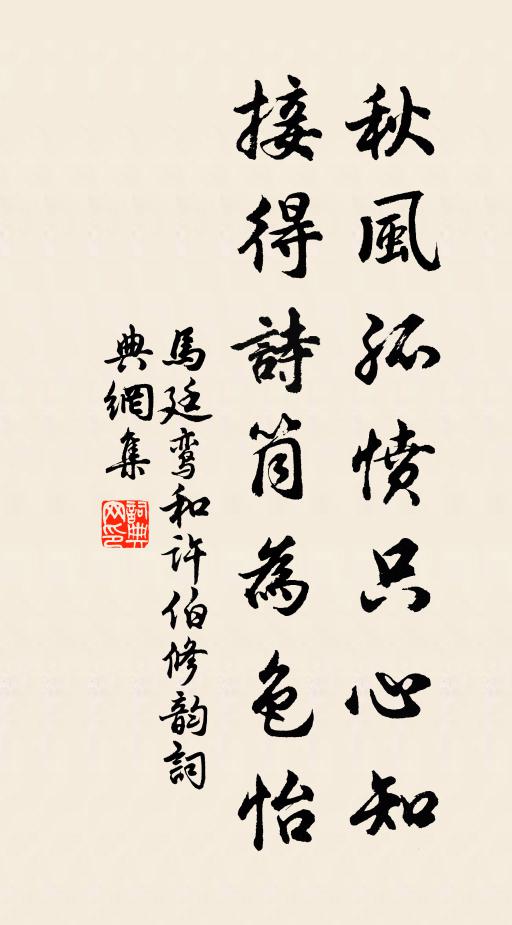 秋風孤憤只心知
接得詩筒為色怡
馬廷鸾和許伯修韵詞
典網集
詞典
网印